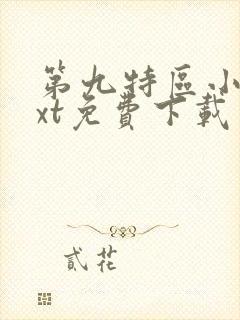 第九特區小
xt免費下載
貳花